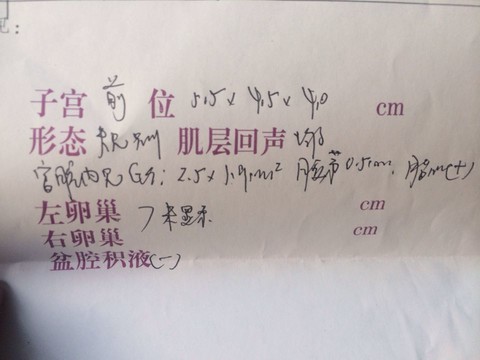 见：
子宫 前 位 5.5x 4.5x 4.0 cm
形态 规则 肌层回声 均
宫腔内见GS: 2.5x1.9cm² 胎芽0.5cm，胎心(+)
左卵巢 } 未显示 cm
右卵巢 cm
盆腔积液(一)